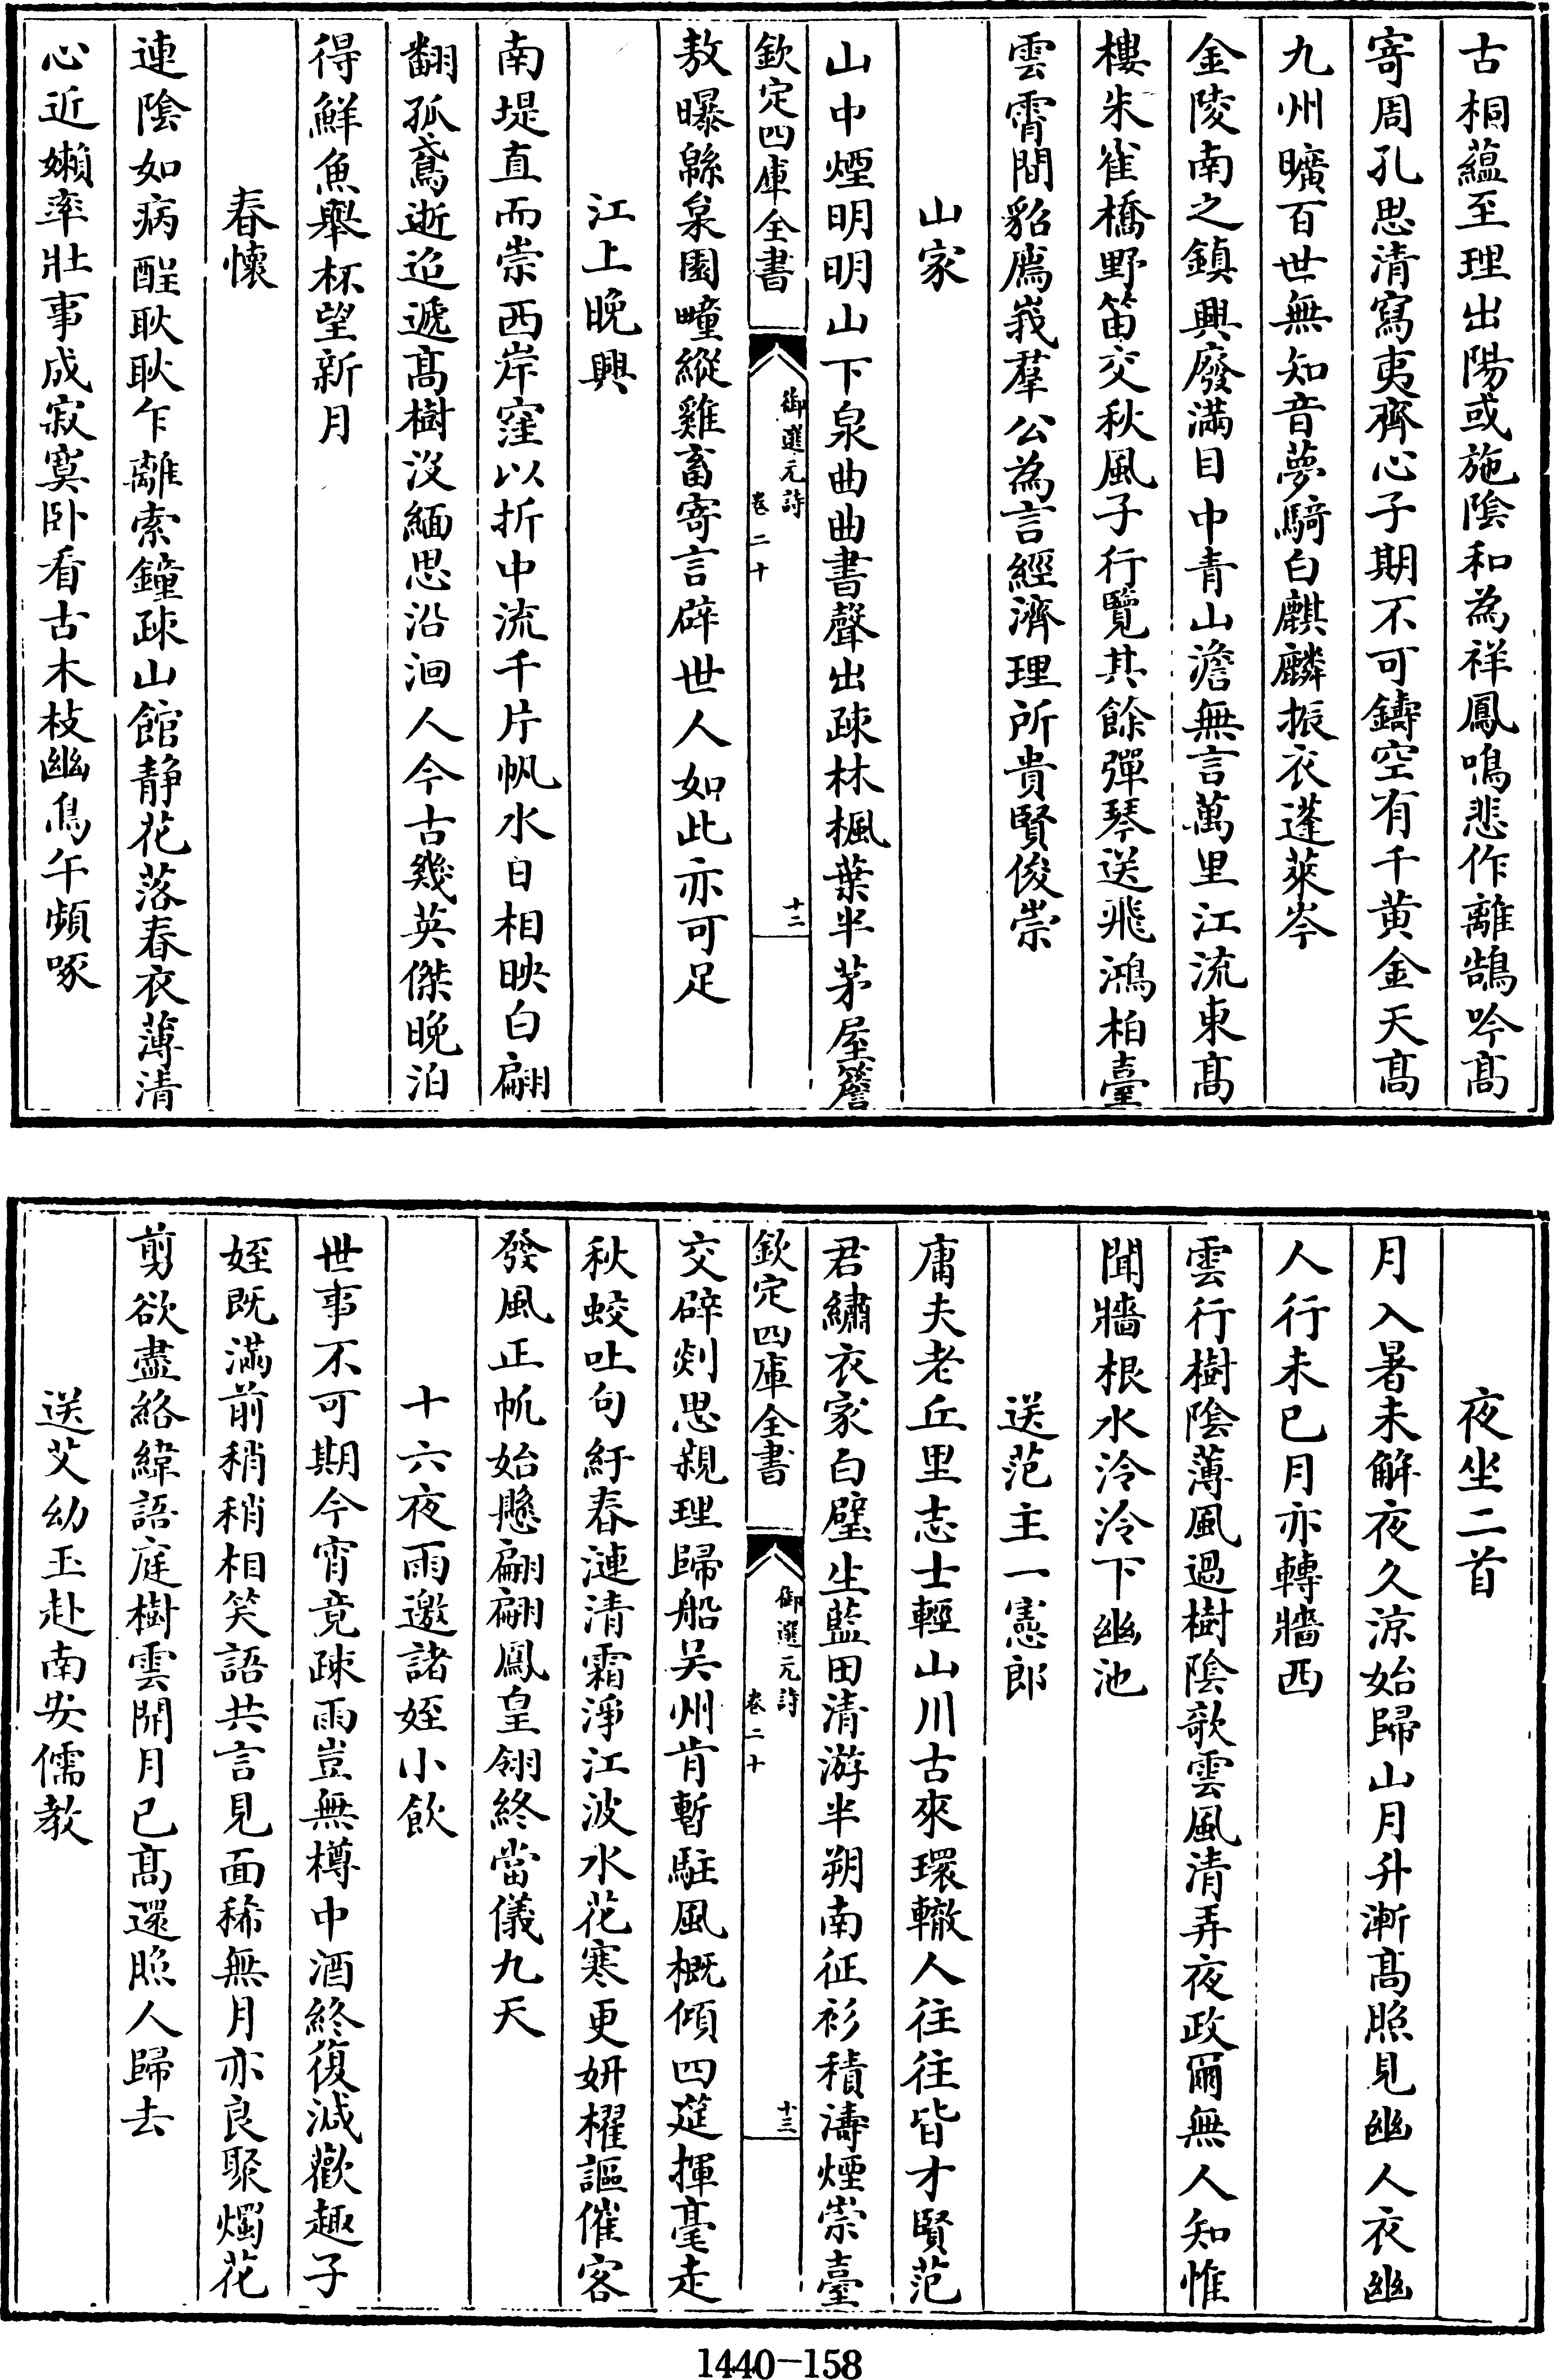 古桐蘊至理出陽或施陰和為祥鳳鳴悲作離鵠吟高
寄周孔思清寫夷齊心子期不可鑄空有千黄金天高
九州曠百世無知音夢騎白麒麟振衣蓬萊岑
金陵南之鎮興廢滿目中青山澹無言萬里江流東高
樓朱雀橋野笛交秋風子行覽其餘彈琴送飛鴻柏臺
雲霄間貂廌峩羣公為言經濟理所貴賢俊崇
山家
山中煙明明山下泉曲曲書聲出疎林楓葉半茅屋簷
欽定四庫全書
御選元詩
卷二十
十二
敖曝緜枲園疃縱雞畜寄言辟世人如此亦可足
江上晚興
南堤直而崇西岸窪以折中流千片帆水日相映白翩
翻孤鳶逝迢遞高樹沒緬思沿洄人今古幾英傑晚泊
得鮮魚舉杯望新月
春懷
連陰如病酲耿耿乍離索鐘疎山館静花落春衣薄清
心近嬾率壯事成寂寞卧看古木枝幽鳥午頻啄
夜坐二首
月入暑未解夜久涼始歸山月升漸高照見幽人衣幽
人行未已月亦轉牆西
雲行樹陰薄風過樹陰欹雲風清弄夜政爾無人知惟
聞牆根水泠泠下幽池
送范主一憲郎
庸夫老丘里志士輕山川古來環轍人往往皆才賢范
君繡衣家白璧生藍田清游半朔南征衫積濤煙崇臺
欽定四庫全書
御選元詩
卷二十
十三
交辟剡思親理歸船吴州肯暫駐風概傾四筵揮毫走
秋蛟吐句紆春漣清霜淨江波水花寒更妍櫂謳催客
發風正帆始懸翩翩鳳皇翎終當儀九天
十六夜雨邀諸姪小飲
世事不可期今宵竟疎雨豈無樽中酒終復減歡趣子
姪既滿前稍稍相笑語共言見面稀無月亦良聚燭花
剪欲盡絡緯語庭樹雲開月已高還照人歸去
送艾幼玉赴南安儒教
1440-158